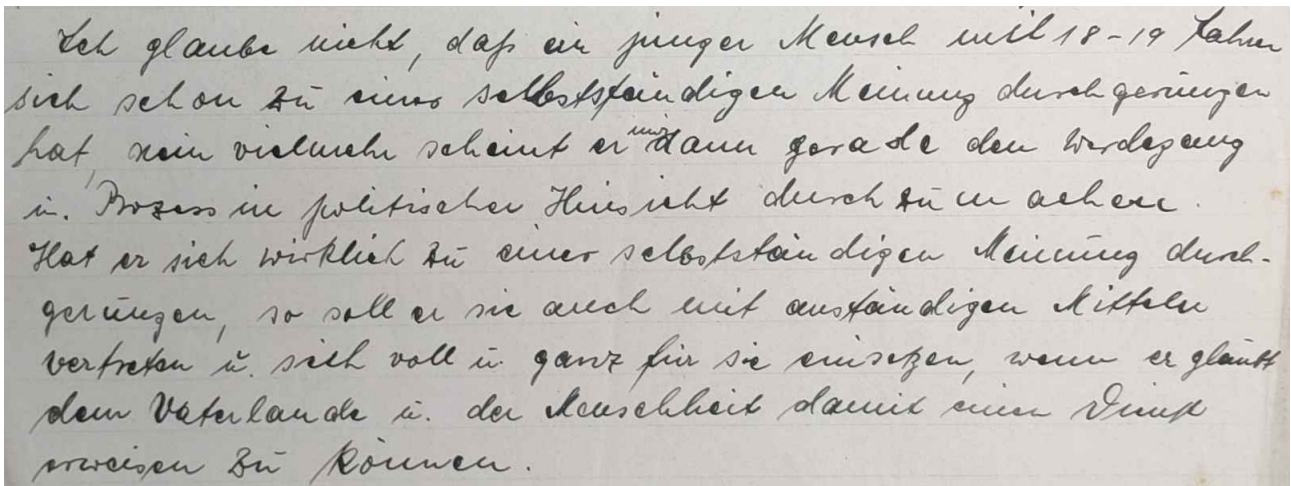 Ich glaube nicht, daß ein junger Mensch mit 18-19 Jahren
sich schon zu einer selbstständigen Meinung durchgerungen
hat, nein vielmehr scheint er mir dann gerade den Werdegang
u. Prozess in politischer Hinsicht durchzumachen.
Hat er sich wirklich zu einer selbstständigen Meinung durch-
gerungen, so soll er sie auch mit anständigen Mitteln
vertreten u. sich voll u. ganz für sie einsetzen, wenn er glaubt
dem Vaterlande u. der Menschheit damit einen Dienst
erweisen zu können.